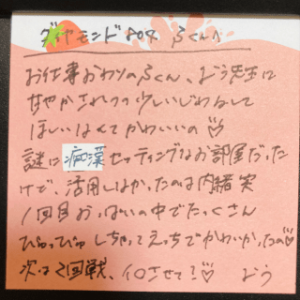 ダイヤモンド ふくん♡
お仕事おわりのふくん、よう先生に
甘やかされつつ少しいじめられて
ほしいなんてかわいいの♡
謎に痴漢セッティングなお部屋だった
けど、活用しなかったのは内緒 笑
1回目おっぱいの中でたっくさん
ぴゅっぴゅしちゃってえっちでかわいかったの♡
次は2回戦、イロさせて!♡ よう